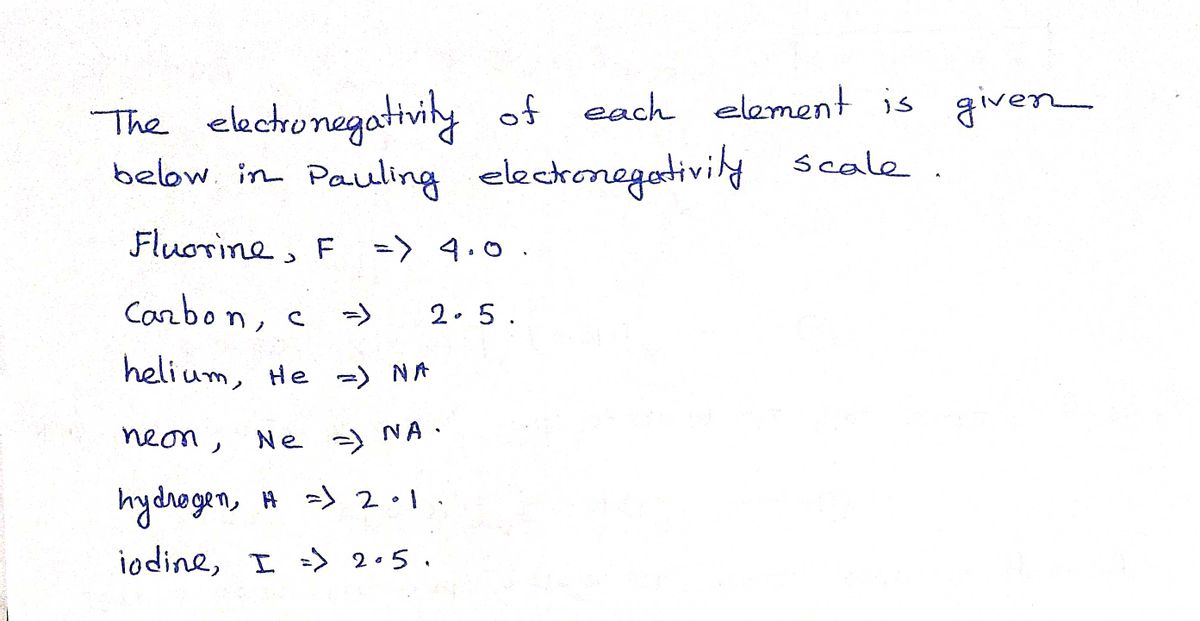 The electronegativity of each element is given
below in Pauling electronegativity scale.
Fluorine, F => 4.0.
Carbon, C => 2.5.
helium, He => NA
neon, Ne => NA.
hydrogen, H => 2.1.
iodine, I => 2.5.